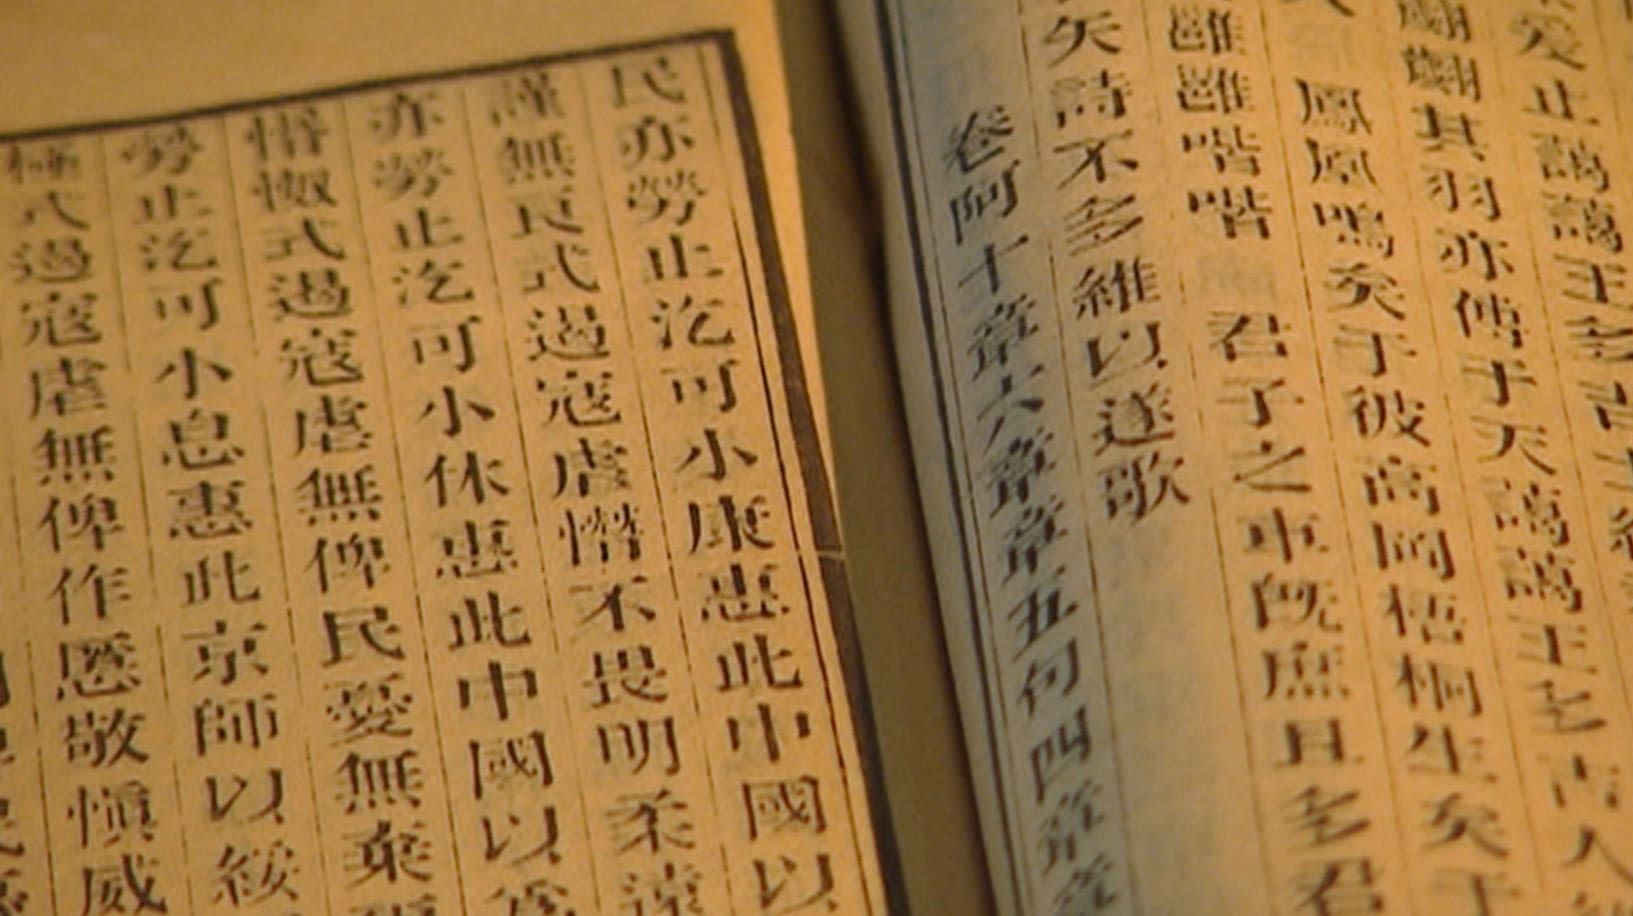 爰止藹藹王多吉士維
翽翽其羽亦傅于天藹藹王多吉人
鳳凰鳴矣于彼高岡梧桐生矣于
雝雝喈喈 君子之車旣庶且多君
矢詩不多維以遂歌
卷阿十章六章章五句四章章
民亦勞止汔可小康惠此中國以
謹無良式遏寇虐憯不畏明柔遠
亦勞止汔可小休惠此中國以爲
惛怓式遏寇虐無俾民憂無棄爾
勞止汔可小息惠此京師以綏
極式遏寇虐無俾作慝敬愼威